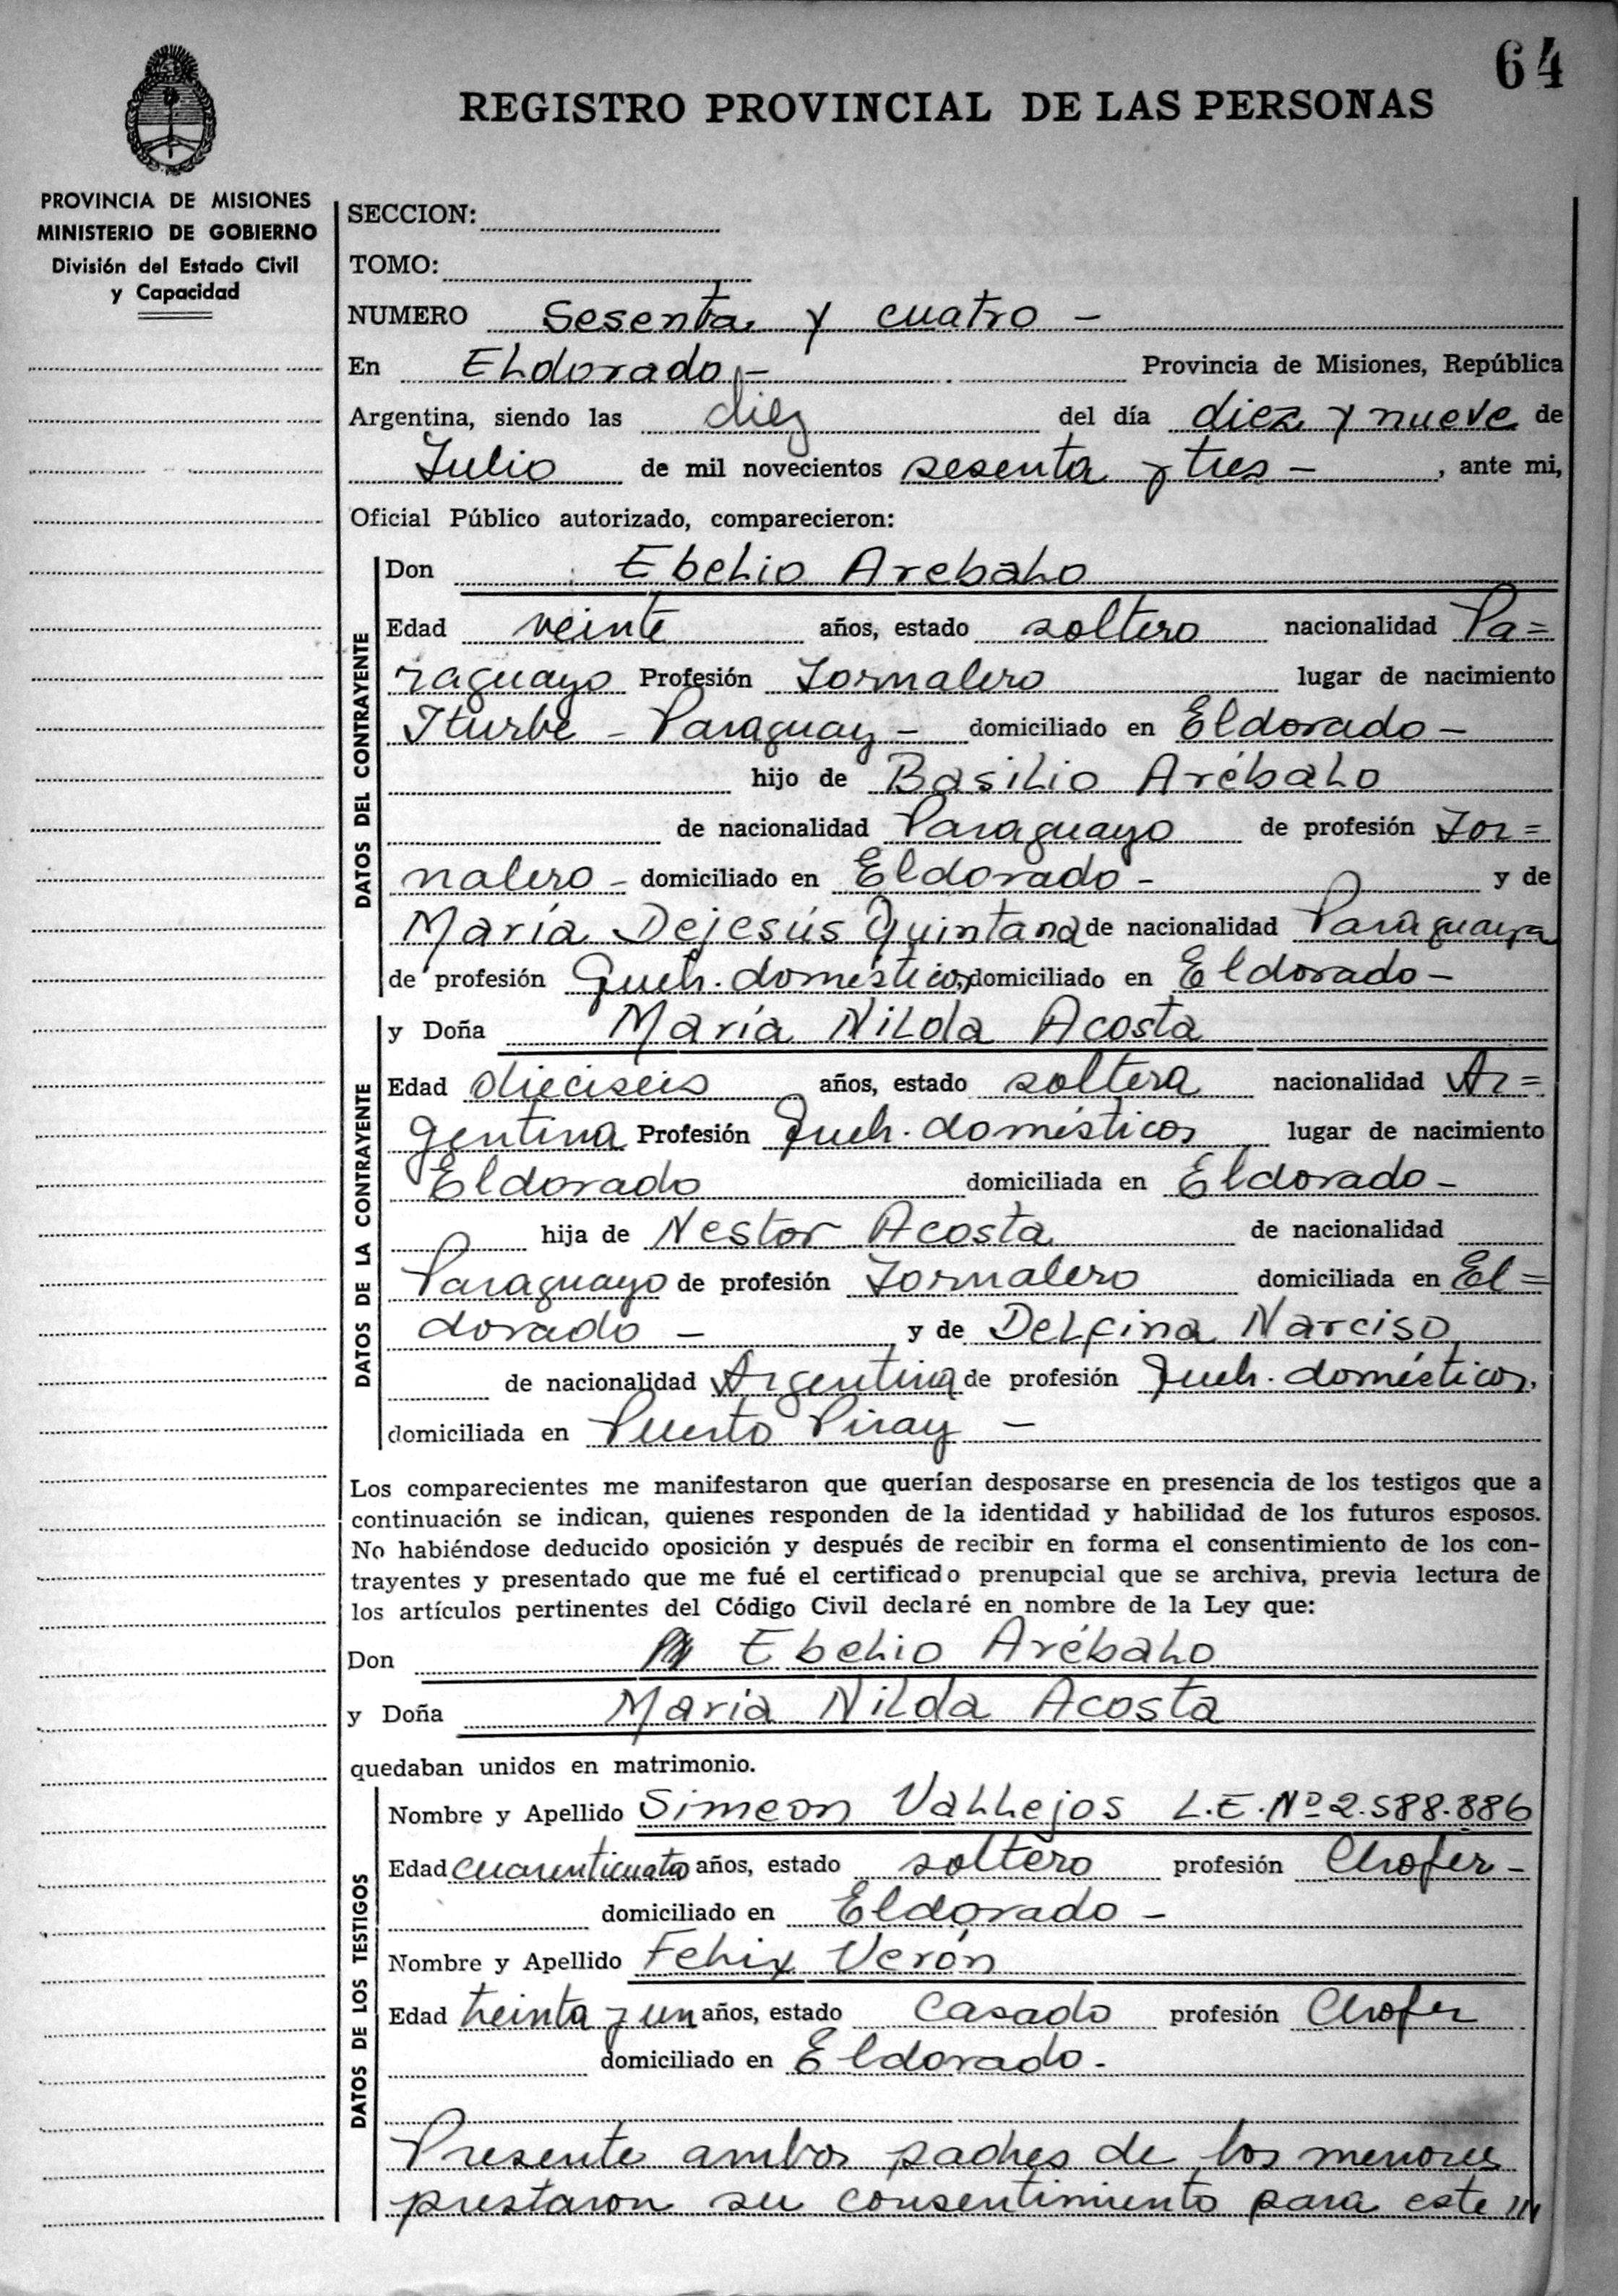 64
REGISTRO PROVINCIAL DE LAS PERSONAS
PROVINCIA DE MISIONES
MINISTERIO DE GOBIERNO
División del Estado Civil
y Capacidad
SECCION:
TOMO:
NUMERO Sesenta y cuatro -
En ELdorado - Provincia de Misiones, República
Argentina, siendo las diez del día diez y nueve de
Julio de mil novecientos sesenta y tres - , ante mi,
Oficial Público autorizado, comparecieron:
DATOS DEL CONTRAYENTE
Don EbeLio ArebaLo
Edad veinte años, estado soltero nacionalidad Pa=
raguayo Profesión Jornalero lugar de nacimiento
Iturbe - Paraguay - domiciliado en Eldorado -
hijo de BasiLio ArébaLo
de nacionalidad Paraguayo de profesión Jor=
nalero - domiciliado en Eldorado - y de
María Dejesús Quintana de nacionalidad Paraguaya
de profesión Queh. domésticos, domiciliado en Eldorado -
DATOS DE LA CONTRAYENTE
y Doña María NiLda Acosta
Edad dieciseis años, estado soltera nacionalidad Ar=
gentina Profesión Queh. domésticos lugar de nacimiento
Eldorado domiciliada en Eldorado -
hija de Nestor Acosta de nacionalidad
Paraguayo de profesión Jornalero domiciliada en El=
dorado - y de DeLfina Narciso
de nacionalidad Argentina de profesión Queh. domésticos,
domiciliada en Puerto Piray -
Los comparecientes me manifestaron que querían desposarse en presencia de los testigos que a
continuación se indican, quienes responden de la identidad y habilidad de los futuros esposos.
No habiéndose deducido oposición y después de recibir en forma el consentimiento de los con-
trayentes y presentado que me fué el certificado prenupcial que se archiva, previa lectura de
los artículos pertinentes del Código Civil declaré en nombre de la Ley que:
Don EbeLio ArébaLo
y Doña María Nilda Acosta
quedaban unidos en matrimonio.
DATOS DE LOS TESTIGOS
Nombre y Apellido Simeon VaLLejos L.E. Nº 2.588.886
Edad cuarenticuatro años, estado soltero profesión Chofer -
domiciliado en Eldorado -
Nombre y Apellido FeLix Verón
Edad treinta y un años, estado Casado profesión Chofer
domiciliado en Eldorado.
Presente ambos padres de los menores
prestaron su consentimiento para este ///